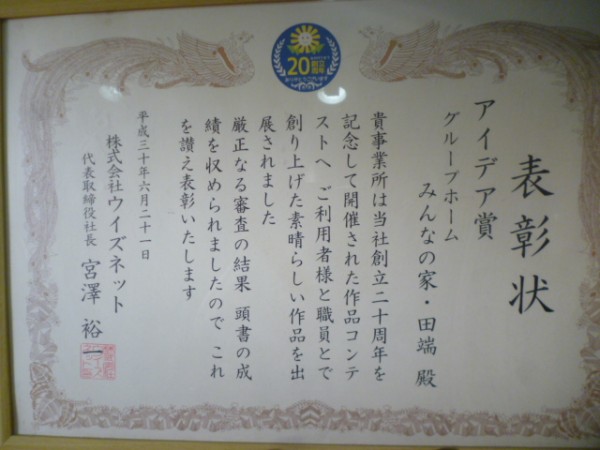 20
創立
周年
表彰状
アイデア賞
グループホーム
みんなの家・田端 殿
貴事業所は当社創立二十周年を
記念して開催された作品コンテ
ストへ ご利用者様と職員とで
創り上げた素晴らしい作品を出
展されました
厳正なる審査の結果 頭書の成
績を収められましたので これ
を讃え表彰いたします
平成三十年六月二十一日
株式会社ウイズネット
代表取締役社長 宮澤 裕一